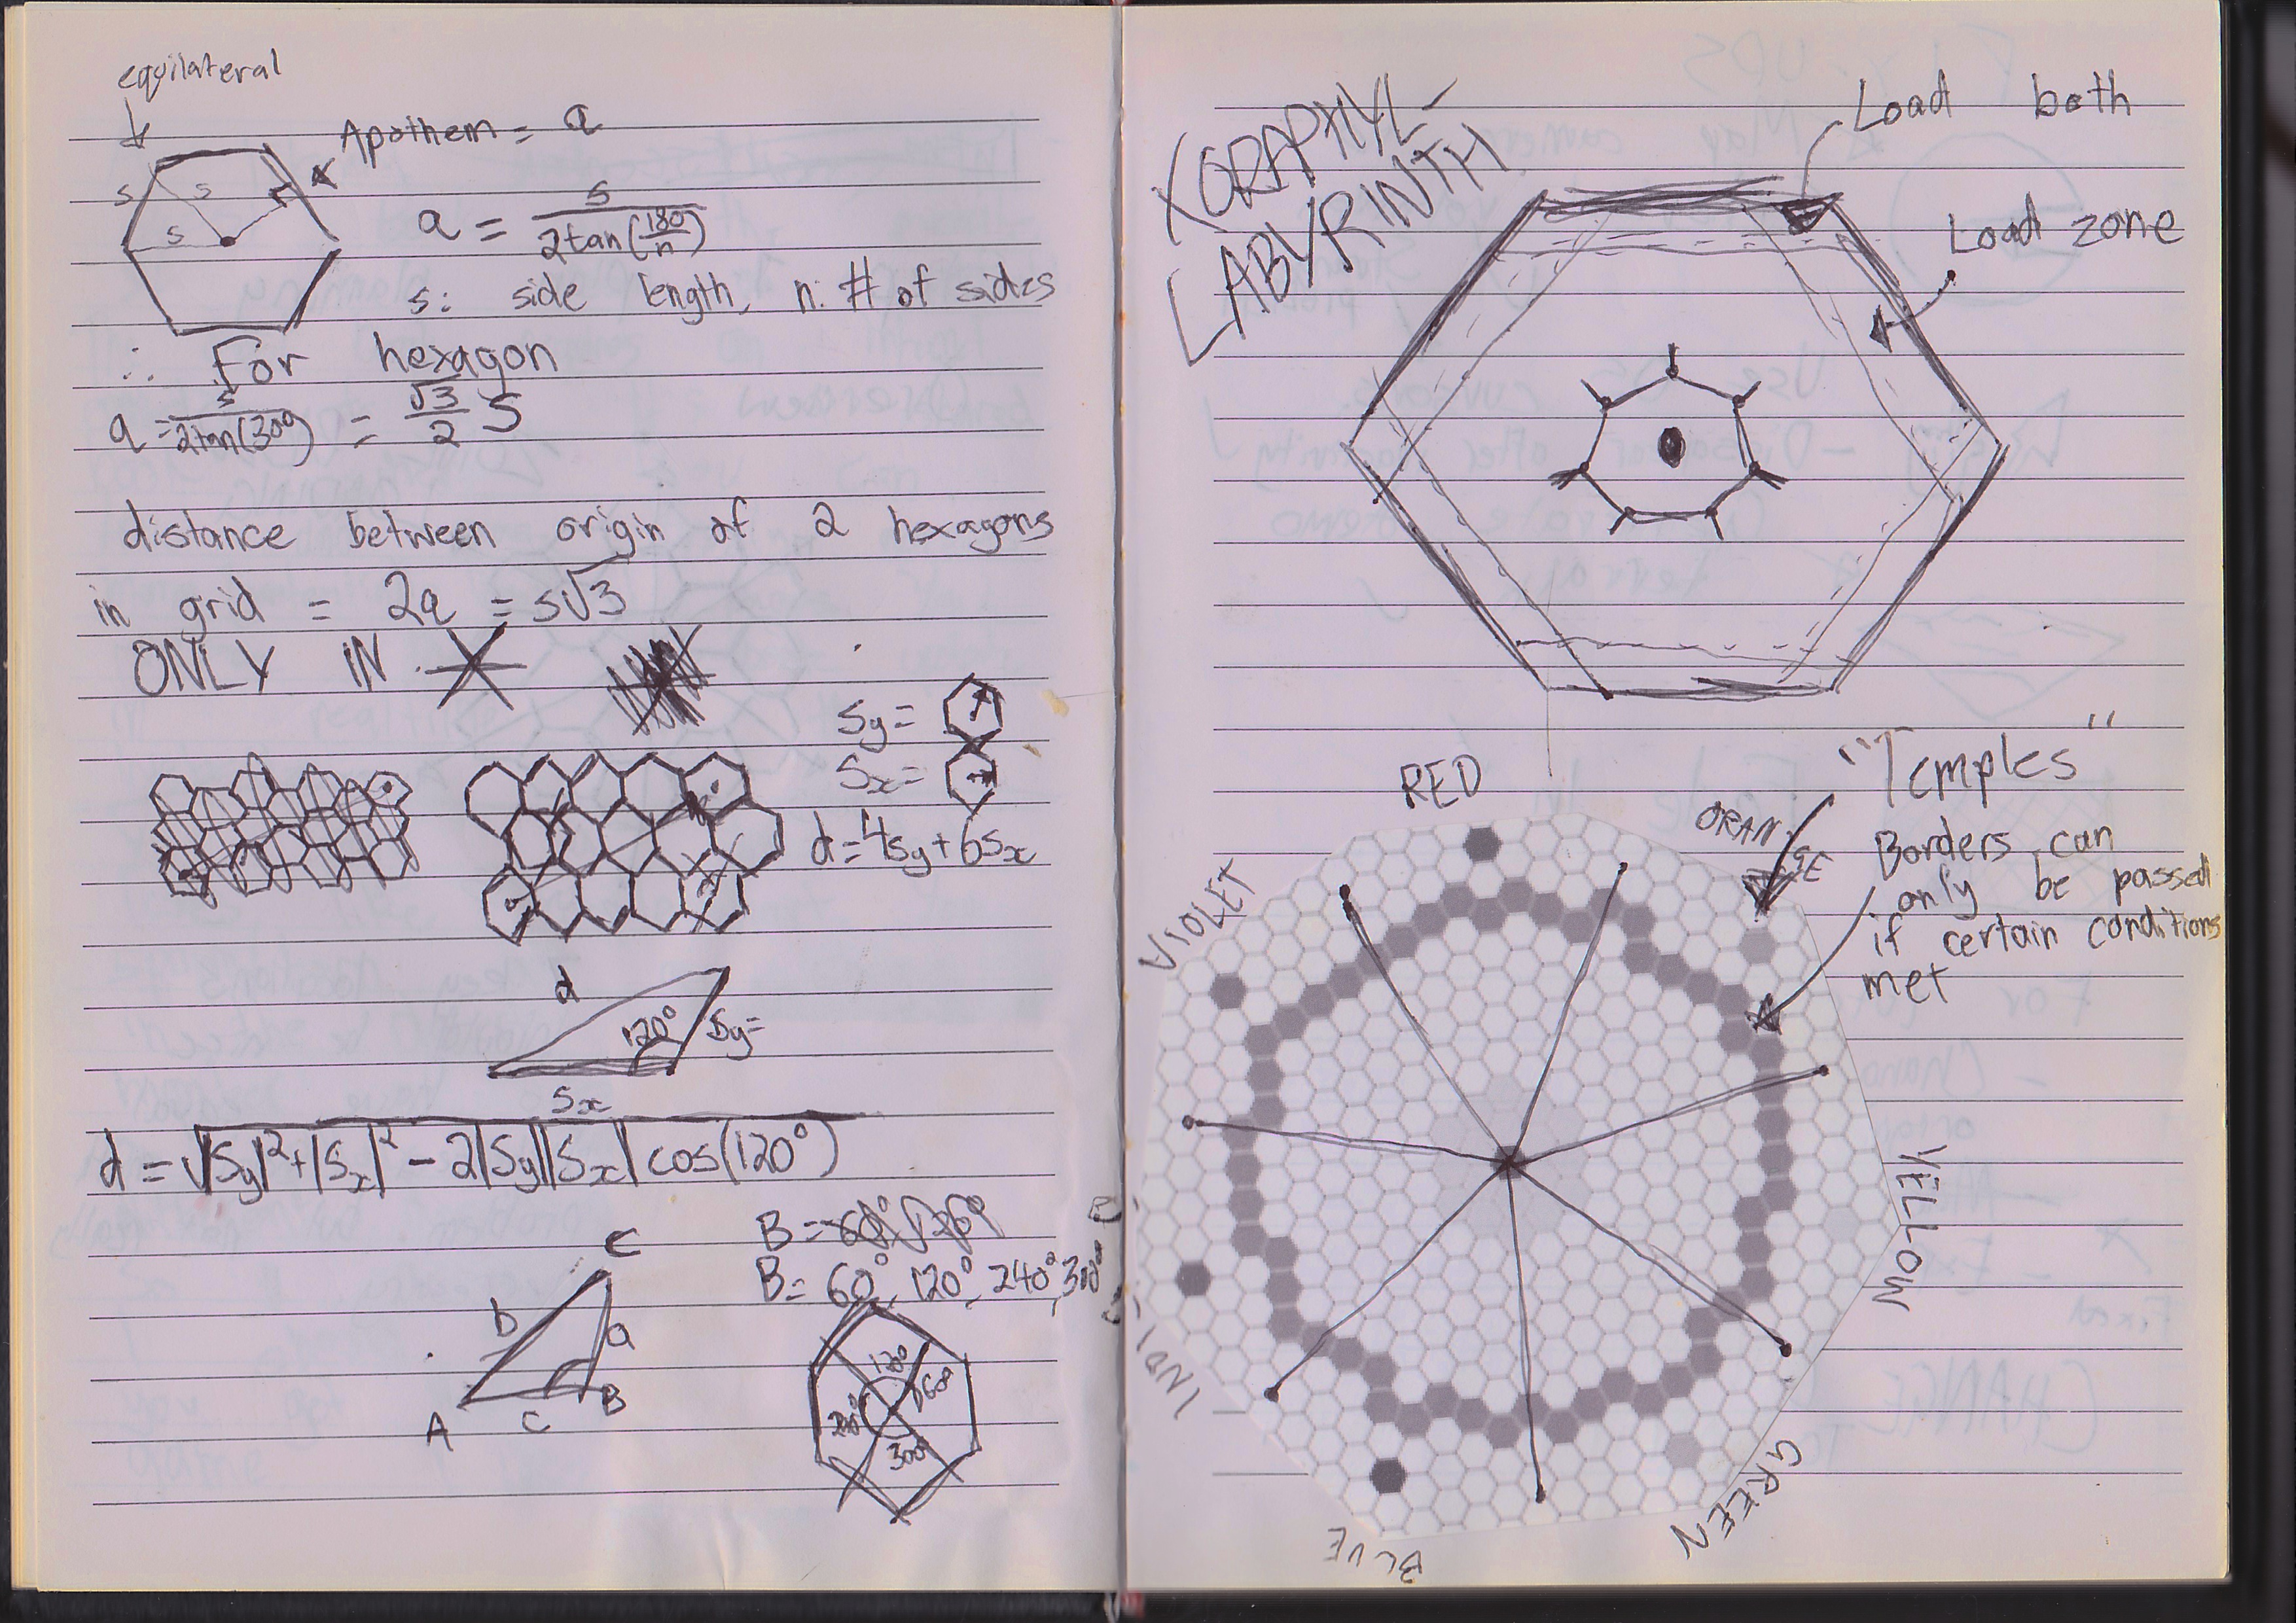 equilateral
Apothem = a
s
s
s
a = s / 2tan(180/n)
s: side length, n: # of sides
∴ For hexagon
a = s / 2tan(30°) = √3/2 s
distance between origin of 2 hexagons
in grid = 2a = s√3
ONLY IN
Sy =
Sx =
d = 4sy + 6sx
d
120°
Sy =
Sx
d = √|Sy|² + |Sx|² - 2|Sy||Sx| cos(120°)
B = 60°, 120°, 240°, 300°
C
b
a
A
c
B
120
60°
240°
300°
XGRAPHYL-
LABYRINTH
Load both
Load zone
"Temples"
Borders can
only be passed
if certain conditions
met
RED
ORAN-
GE
YELLOW
GREEN
BLUE
INDI-
VIOLET